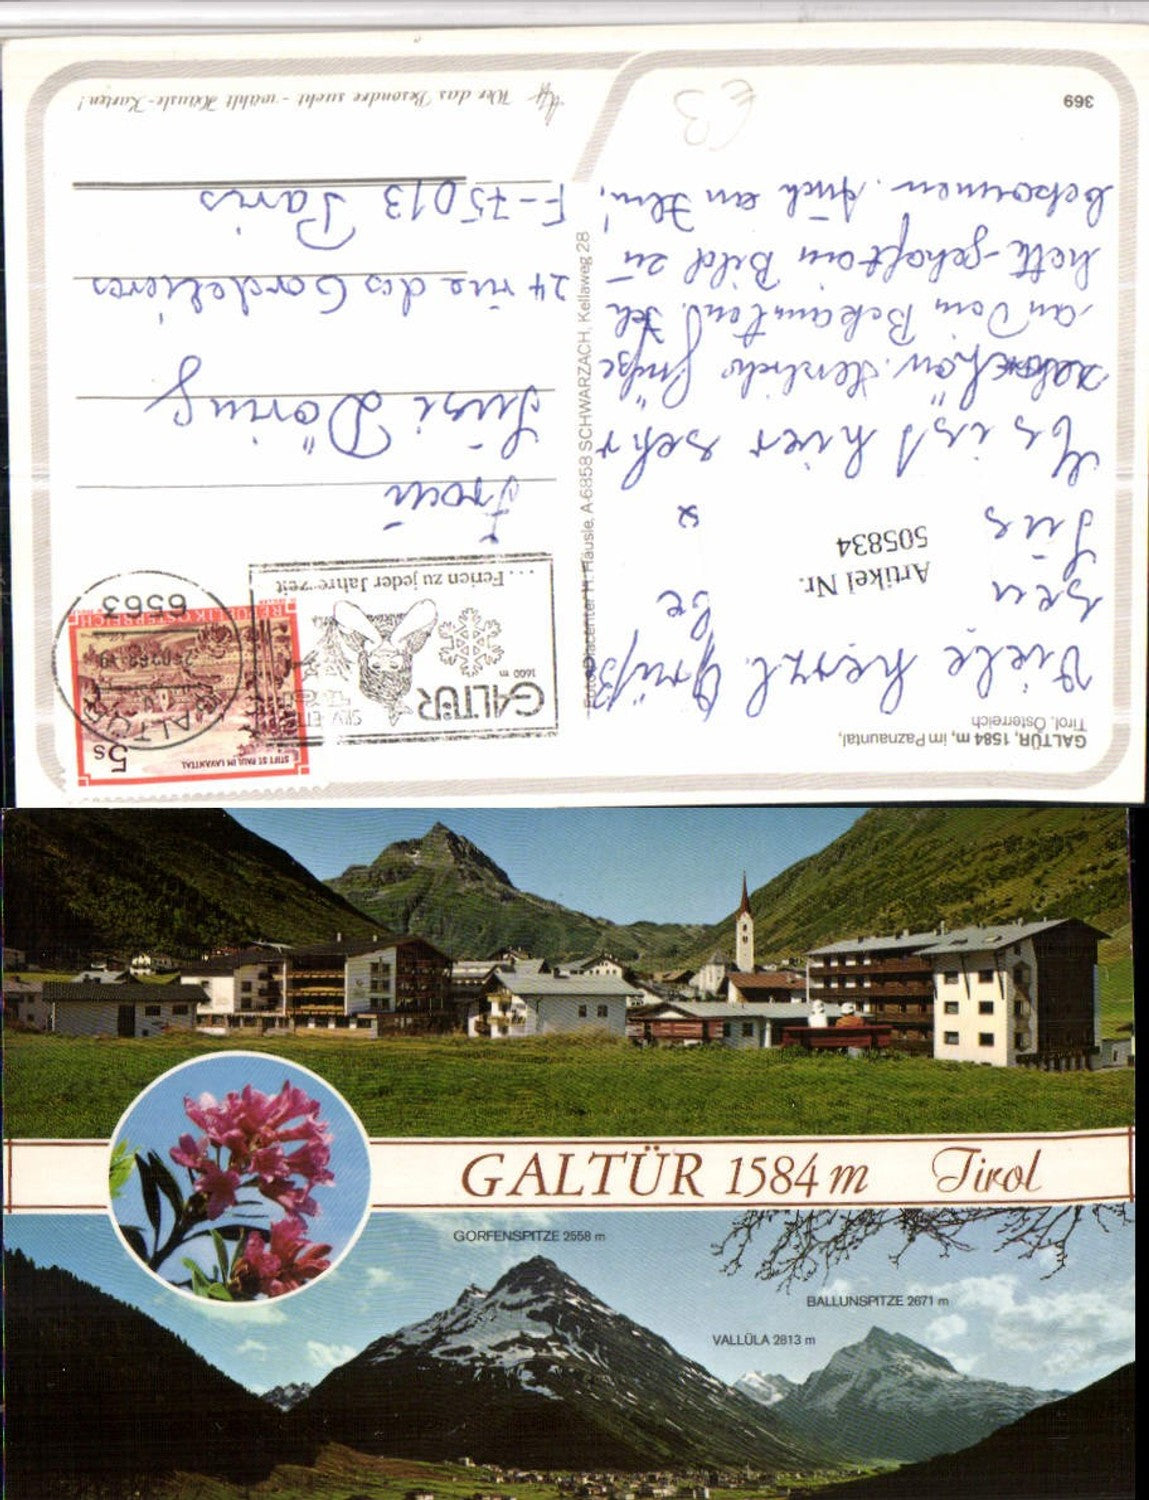 Wer das Besondere sucht - wählt Häusle-Karten!
369
GALTÜR, 1584 m, im Paznauntal,
Tirol, Österreich
Viele herzl. Grüße
Es ist hier sehr
schön. Herzliche Grüße
an Dein Bekannten. Ich
hatte gehofft ein Bild zu
bekommen. Auch an Ihn!
Artikel Nr.
505834
Foto Placenter H. Häusle, A-6858 SCHWARZACH, Kellaweg 28
STIFT ST. PAUL IM LAVANTTAL
5s
REPUBLIK ÖSTERREICH
GALTÜR
6563
GALTÜR
1600 m
... Ferien zu jeder Jahreszeit
Frau
Susi Döring
24 rue des Cordelières
F-75013 Paris
€3
GALTÜR 1584 m Tirol
GORFENSPITZE 2558 m
BALLUNSPITZE 2671 m
VALLÜLA 2813 m